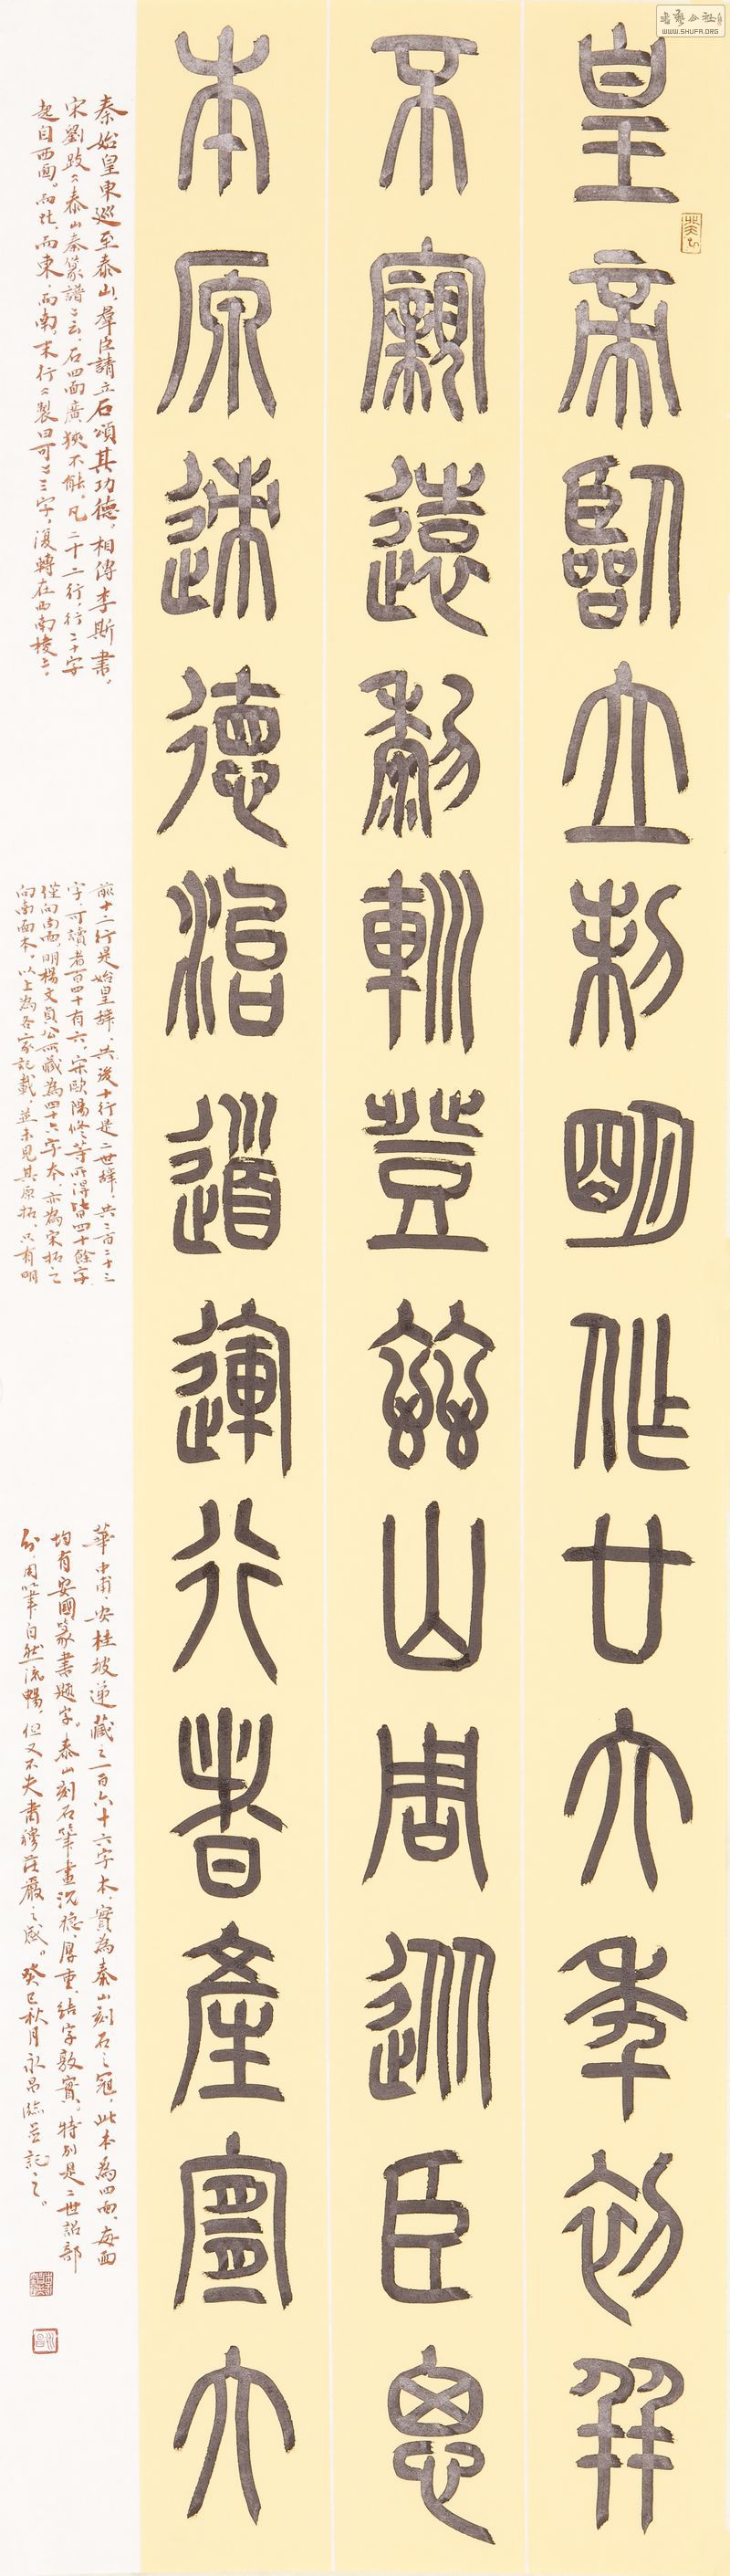 皇帝臨立制明作廿六年初并
不窺遠黎輒登茲山周巡臣思
本原速德治道運行者產寊大
秦始皇東巡至泰山，群臣請立石頌其功德，相傳李斯書。
宋劉跂《泰山秦篆譜》云，石四面廣狹不能，凡二十二行，行二十字
起自西面，而北，而東，而南，末行《製曰可》三字，復轉在西南棱上。
前十二行是始皇辭，其後十行是二世辭，共二百二十三
字，可讀者百四十有六，宋歐陽修等所得皆四十餘字，
僅向南面，明楊文貞公所藏為四十六字本，亦為宋拓之
向南面本，以上為各家記載，並未見其原拓，只有明
華中甫、安桂坡遞藏之一百六十六字本，實為泰山刻石之冠，此本為四面，每面
均有安國篆書題字。泰山刻石筆畫沉穩、厚重，結字敦實，特別是二世詔部
分，用筆自然流暢，但又不失肅穆莊嚴之感。癸巳秋月永昌臨並記之。
WWW.SHUFA.ORG